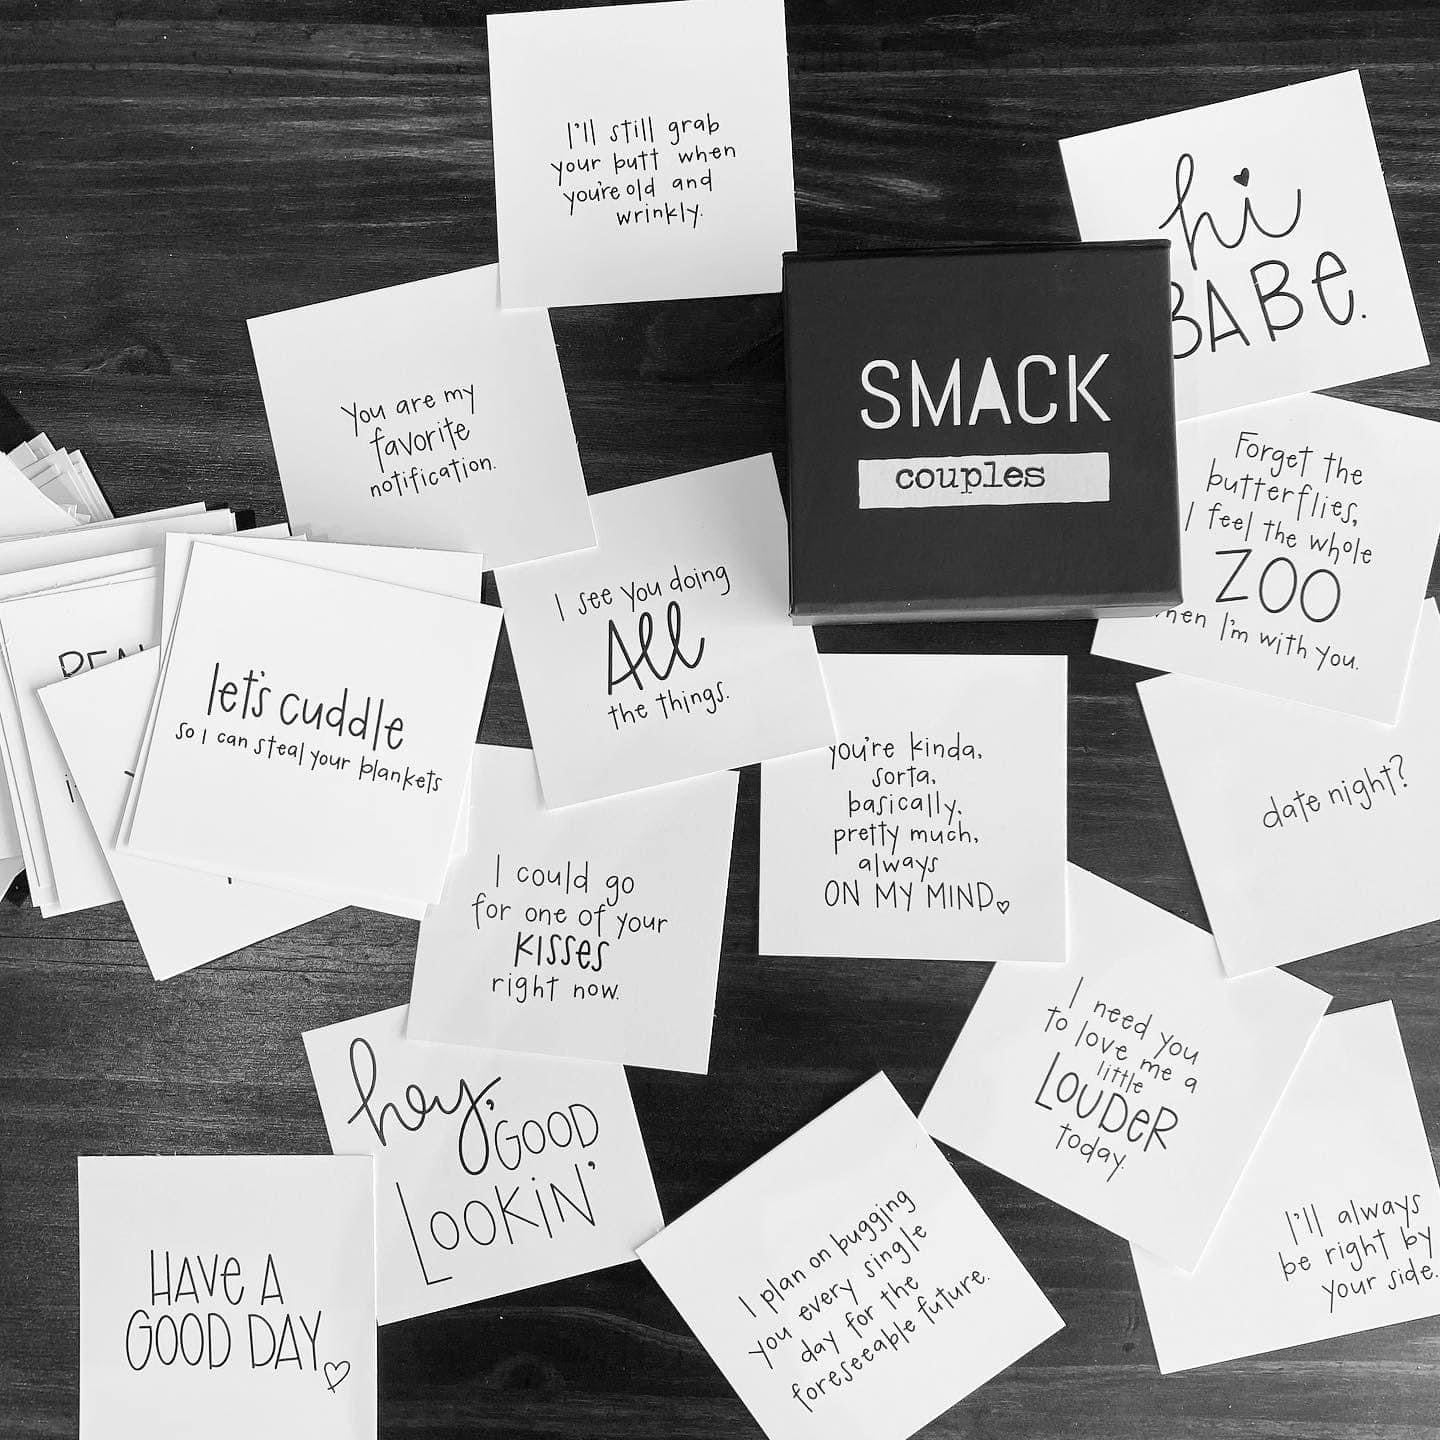 I'll still grab
your butt when
you're old and
wrinkly.
hi
BABE.
You are my
favorite
notification.
SMACK
couples
Forget the
butterflies,
I feel the whole
ZOO
when I'm with you.
I see you doing
All
the things.
let's cuddle
so I can steal your blankets
you're kinda,
sorta,
basically,
pretty much,
always
ON MY MIND
date night?
I could go
for one of your
KISSES
right now.
I need you
to love me a
little
LOUDER
today.
hey,
GOOD
LOOKIN'
I'll always
be right by
your side.
I plan on bugging
you every single
day for the
foreseeable future.
HAVE A
GOOD DAY